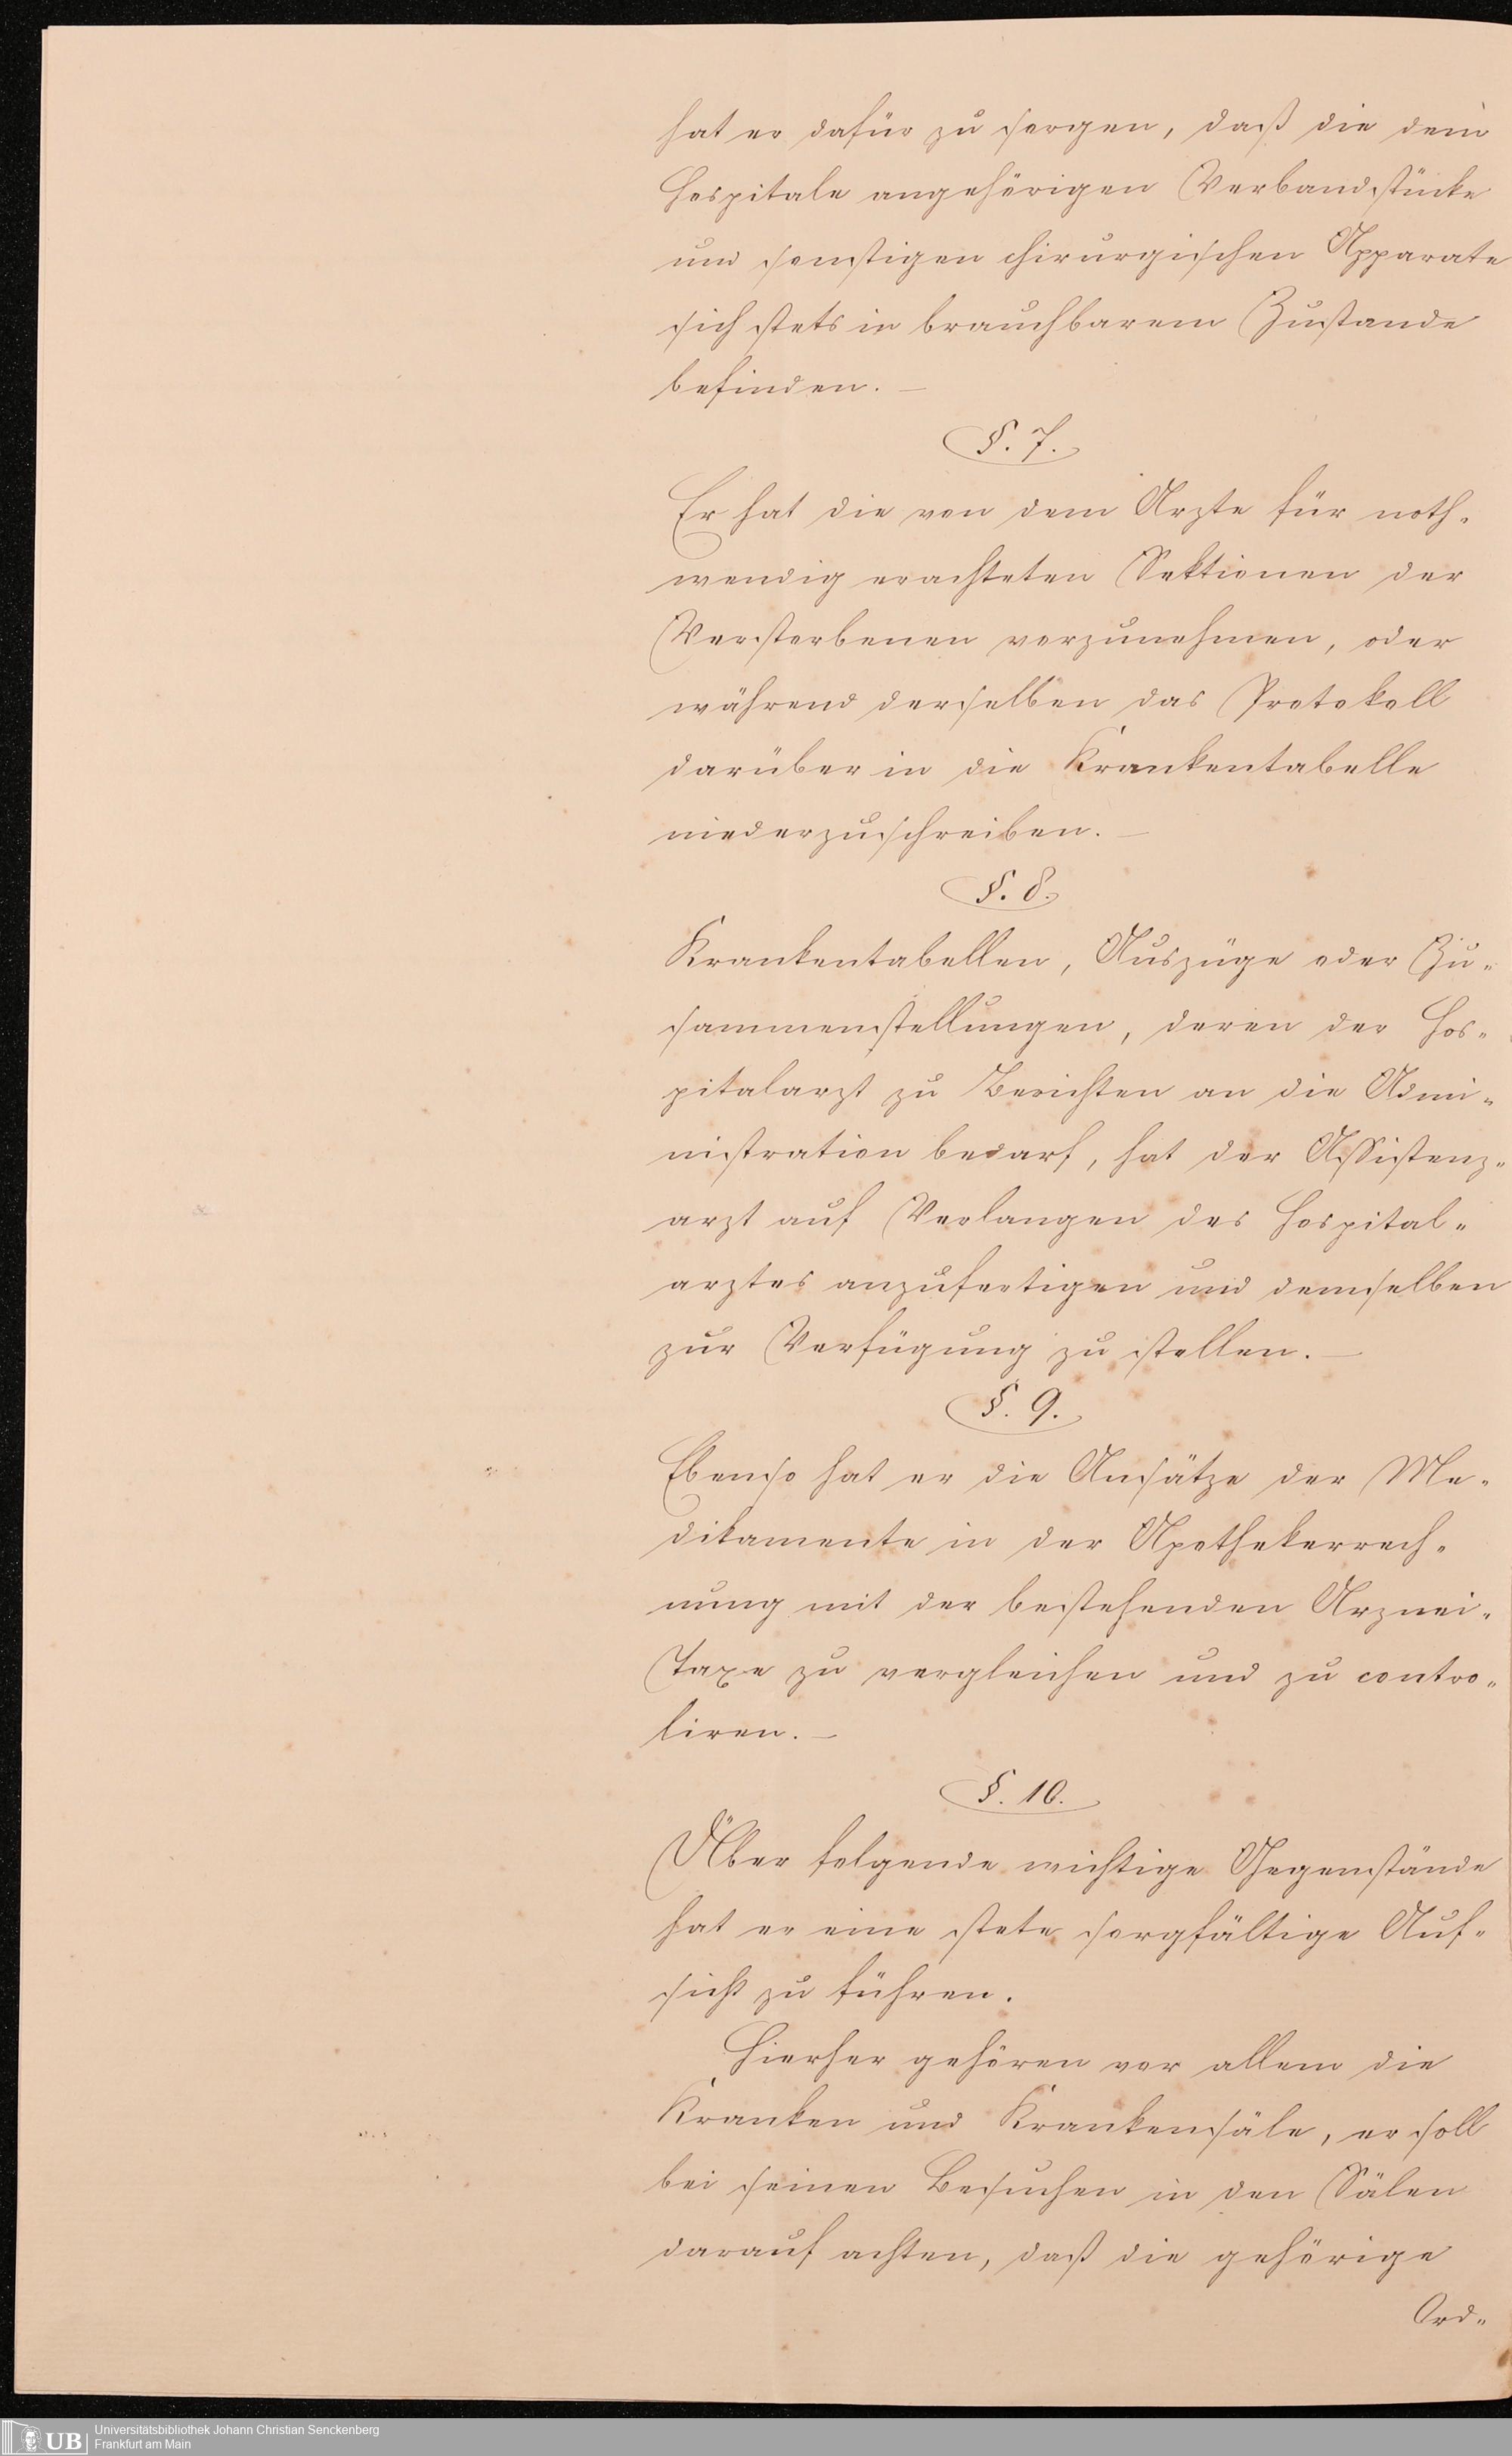 hat er dafür zu sorgen, daß die dem
Hospitale angehörigen Verbandstücke
und sonstigen chirurgischen Apparate
sich stets in brauchbarem Zustande
befinden. —
§. 7.
Er hat die von dem Arzte für noth-
wendig erachteten Sektionen der
Verstorbenen vorzunehmen, oder
während derselben das Protokoll
darüber in die Krankentabelle
niederzuschreiben. —
§. 8.
Krankentabellen, Auszüge oder Zu-
sammenstellungen, deren der Hos-
pitalarzt zu Berichten an die Admi-
nistration bedarf, hat der Assistenz-
arzt auf Verlangen des Hospital-
arztes anzufertigen und demselben
zur Verfügung zu stellen. —
§. 9.
Ebenso hat er die Ansätze der Me-
dikamente in der Apothekerrech-
nung mit der bestehenden Arznei-
Taxe zu vergleichen und zu contro-
liren. —
§. 10.
Über folgende wichtige Gegenstände
hat er eine stete sorgfältige Auf-
sicht zu führen.
Hierher gehören vor allem die
Kranken und Krankensäle, er soll
bei seinen Besuchen in den Sälen
darauf achten, daß die gehörige
Ord-
UB
Universitätsbibliothek Johann Christian Senckenberg
Frankfurt am Main